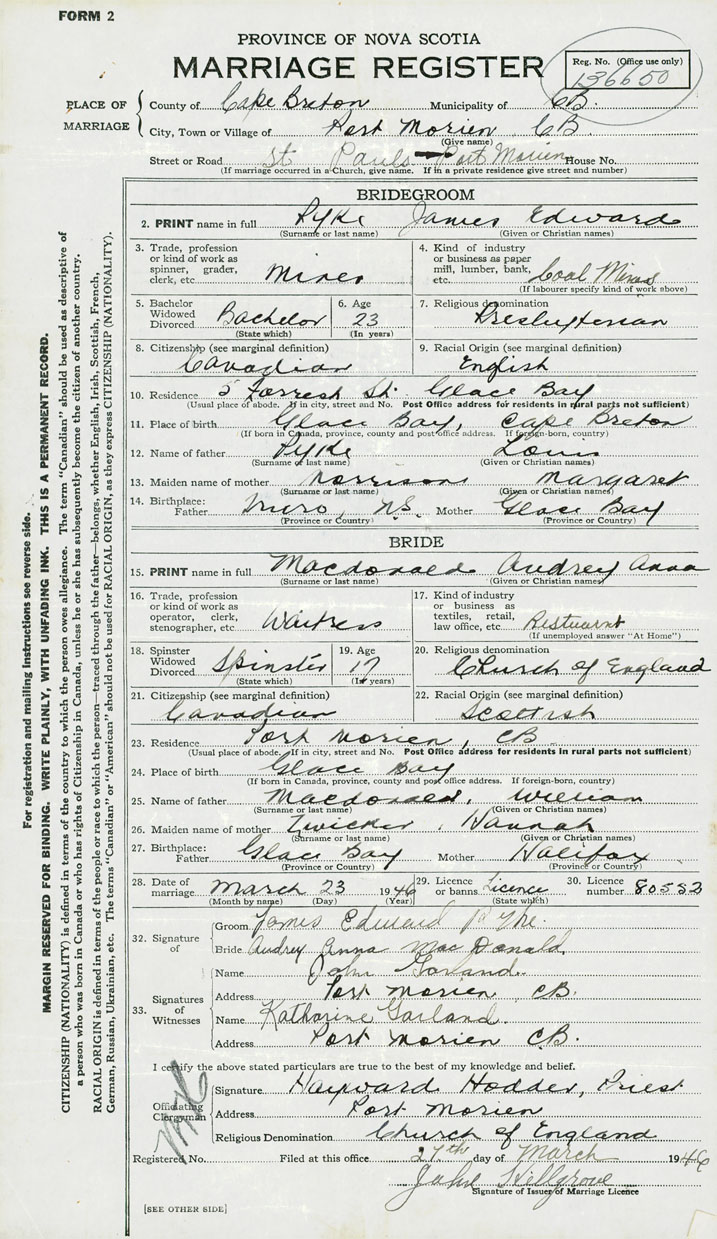 FORM 2
PROVINCE OF NOVA SCOTIA
MARRIAGE REGISTER
Reg. No. (Office use only)
136650
PLACE OF MARRIAGE
County of Cape Breton Municipality of CB.
City, Town or Village of Port Morien CB
(Give name)
Street or Road St Pauls Port Morien House No.
(If marriage occurred in a Church, give name. If in a private residence give street and number)
BRIDEGROOM
2. PRINT name in full Pyke James Edward
(Surname or last name) (Given or Christian names)
3. Trade, profession or kind of work as spinner, grader, clerk, etc. Miner
4. Kind of industry or business as paper mill, lumber, bank, etc. Coal Mines
(If labourer specify kind of work above)
5. Bachelor Widowed Divorced Bachelor
(State which)
6. Age 23
(In years)
7. Religious denomination Presbyterian
8. Citizenship (see marginal definition) Canadian
9. Racial Origin (see marginal definition) English
10. Residence 5 Forrest St. Glace Bay
(Usual place of abode. If in city, street and No. Post Office address for residents in rural parts not sufficient)
11. Place of birth Glace Bay, Cape Breton
(If born in Canada, province, county and post office address. If foreign-born, country)
12. Name of father Pyke Louis
(Surname or last name) (Given or Christian names)
13. Maiden name of mother Morrison Margaret
(Surname or last name) (Given or Christian names)
14. Birthplace: Father Truro, N.S. Mother Glace Bay
(Province or Country) (Province or Country)
BRIDE
15. PRINT name in full Macdonald Audrey Anna
(Surname or last name) (Given or Christian names)
16. Trade, profession or kind of work as operator, clerk, stenographer, etc. Waitress
17. Kind of industry or business as textiles, retail, law office, etc. Restuarnt
(If unemployed answer "At Home")
18. Spinster Widowed Divorced Spinster
(State which)
19. Age 17
(In years)
20. Religious denomination Church of England
21. Citizenship (see marginal definition) Canadian
22. Racial Origin (see marginal definition) Scottish
23. Residence Port Morien, CB
(Usual place of abode. If in city, street and No. Post Office address for residents in rural parts not sufficient)
24. Place of birth Glace Bay
(If born in Canada, province, county and post office address. If foreign-born, country)
25. Name of father Macdonald, William
(Surname or last name) (Given or Christian names)
26. Maiden name of mother Zwicker, Hannah
(Surname or last name) (Given or Christian names)
27. Birthplace: Father Glace Bay Mother Halifax
(Province or Country) (Province or Country)
28. Date of marriage March 23 1946
(Month by name) (Day) (Year)
29. Licence or banns Licence
(State which)
30. Licence number 80582
32. Signature of
Groom James Edward Pyke
Bride Audrey Anna Mac Donald
33. Signatures of Witnesses
Name John Garland
Address Port Morien, CB.
Name Katharine Garland
Address Port Morien C.B.
I certify the above stated particulars are true to the best of my knowledge and belief.
Officiating Clergyman
Signature Hayward Hodder, Priest
Address Port Morien
Religious Denomination Church of England
Registered No. Filed at this office 27th day of March 1946
Signature of Issuer of Marriage Licence
[SEE OTHER SIDE]
For registration and mailing instructions see reverse side.
MARGIN RESERVED FOR BINDING. WRITE PLAINLY, WITH UNFADING INK. THIS IS A PERMANENT RECORD.
CITIZENSHIP (NATIONALITY) is defined in terms of the country to which the person owes allegiance. The term "Canadian" should be used as descriptive of
a person who was born in Canada or who has rights of Citizenship in Canada, unless he or she has subsequently become the citizen of another country.
RACIAL ORIGIN is defined in terms of the people or race to which the person—traced through the father—belongs, whether English, Irish, Scottish, French,
German, Russian, Ukrainian, etc. The terms "Canadian" or "American" should not be used for RACIAL ORIGIN, as they express CITIZENSHIP (NATIONALITY).